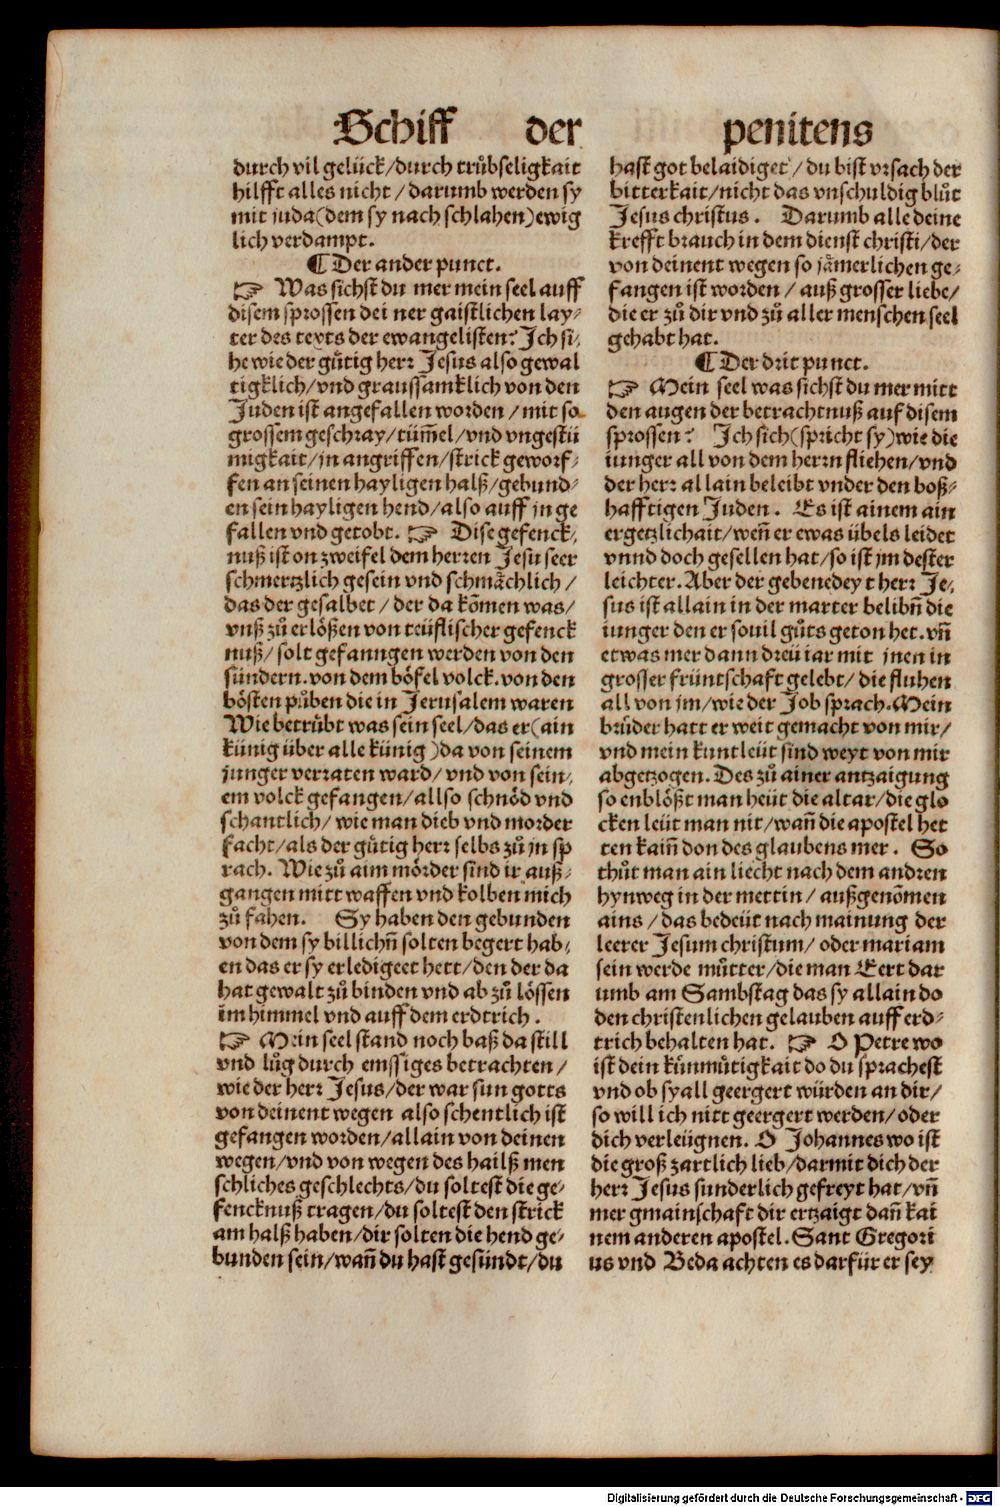 Schiff der penitens
durch vil gelück/durch trůbseligkait
hilfft alles nicht / darumb werden sy
mit juda(dem sy nach schlahen)ewig
lich verdampt.
¶ Der ander punct.
☞ Was sichst du mer mein seel auff
disem sprossen dei ner gaistlichen lay⸗
ter des texts der ewangelisten? Ich si⸗
he wie der gůtig herr Jesus also gewal
tigklich/vnd graussamklich von den
Juden ist angefallen worden / mit so
grossem geschray/tüm̃el/vnd vngestü
migkait/jn angriffen/strick geworf⸗
fen an seinen hayligen halß/gebund⸗
en sein hayligen hend/also auff jn ge
fallen vnd getobt. ☞ Dise gefenck⸗
nuß ist on zweifel dem herren Jesu seer
schmertzlich gesein vnd schmåchlich /
das der gesalbet / der da kõmen was/
vnß zů erlößen von teüflischer gefenck
nuß/ solt gefanngen werden von den
sündern.von dem böfel volck.von den
bösten půben die in Jerusalem waren
Wie betrůbt was sein seel/das er(ain
künig über alle künig )da von seinem
junger verraten ward/ vnd von sein⸗
em volck gefangen/allso schnöd vnd
schantlich/ wie man dieb vnd morder
facht/als der gůtig herr selbs zů jn sp
rach. Wie zů aim mörder sind ir auß⸗
gangen mitt waffen vnd kolben mich
zů fahen. Sy haben den gebunden
von dem sy billichñ solten begert hab⸗
en das er sy erledigeet hett/den der da
hat gewalt zů binden vnd ab zů lössen
im himmel vnd auff dem erdtrich .
☞ Mein seel stand noch baß da still
vnd lůg durch emssiges betrachten /
wie der herr Jesus/der war sun gotts
von deinent wegen also schentlich ist
gefangen worden/allain von deinen
wegen/vnd von wegen des hailß men
schliches geschlechts/du soltest die ge⸗
fencknuß tragen/du soltest den strick
am halß haben/dir solten die hend ge⸗
bunden sein/wañ du hast gesündt/du
hast got belaidiget / du bist vrsach der
bitterkait/nicht das vnschuldig blůt
Jesus christus . Darumb alle deine
krefft brauch in dem dienst christi/der
von deinent wegen so jåmerlichen ge⸗
fangen ist worden / auß grosser liebe/
die er zů dir vnd zů aller menschen seel
gehabt hat.
¶ Der drit punct.
☞ Mein seel was sichst du mer mitt
den augen der betrachtnuß auf disem
sprossen? Ich sich(spricht sy)wie die
iunger all von dem herrn fliehen/vnd
der herr allain beleibt vnder den boß⸗
hafftigen Juden . Es ist ainem ain
ergetzlichait/weñ er ewas übels leidet
vnnd doch gesellen hat/so ist jm dester
leichter. Aber der gebenedeyt herr Je⸗
sus ist allain in der marter belibñ die
iunger den er souil gůts geton het.vñ
etwas mer dann dreü iar mit jnen in
grosser früntschaft gelebt/ die fluhen
all von jm/wie der Job sprach.Mein
brůder hatt er weit gemacht von mir/
vnd mein kuntleüt sind weyt von mir
abgetzogen. Des zů ainer antzaigung
so enblößt man heüt die altar/die glo
cken leüt man nit/wañ die apostel het
ten kaiñ don des glaubens mer . So
thůt man ain liecht nach dem andren
hynweg in der mettin/ außgenõmen
ains / das bedeüt nach mainung der
leerer Jesum christum/ oder mariam
sein werde můtter/die man Eert dar
umb am Sambstag das sy allain do
den christenlichen gelauben auff erd⸗
trich behalten hat. ☞ O Petre wo
ist dein kůnmůtigkait do du sprachest
vnd ob sy all geergert würden an dir/
so will ich nitt geergert werden/ oder
dich verleügnen. O Johannes wo ist
die groß zartlich lieb/darmit dich der
herr Jesus sunderlich gefreyt hat/vñ
mer gmainschaft dir ertzaigt dañ kai
nem anderen apostel. Sant Gregori
us vnd Beda achten es darfür er sey
Digitalisierung gefördert durch die Deutsche Forschungsgemeinschaft - DFG